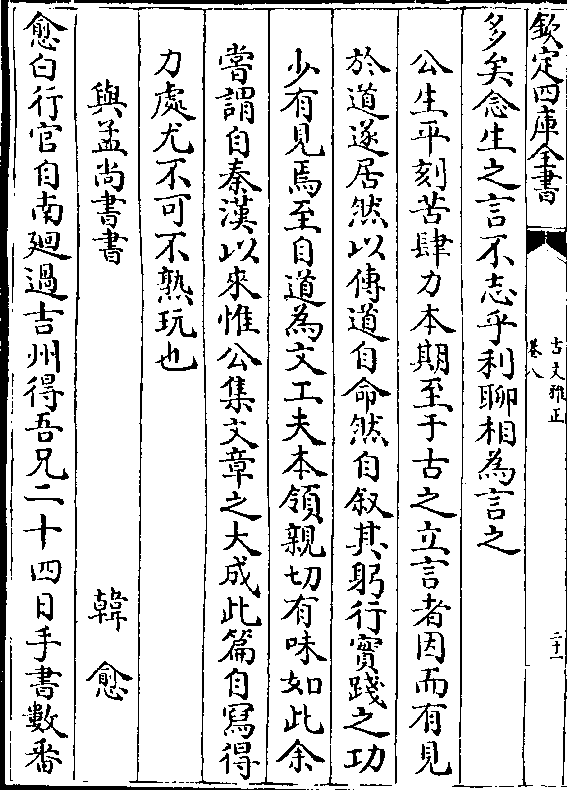 欽定四庫全書
古文雅正
卷八
二十一
多矣念生之言不志乎利聊相為言之
公生平刻苦肆力本期至于古之立言者因而有見
於道遂居然以傳道自命然自叙其躬行實踐之功
少有見焉至自道為文工夫本領親切有味如此余
嘗謂自秦漢以來惟公集文章之大成此篇自寫得
力處尤不可不熟玩也
與孟尚書書 韓愈
愈白行官自南廻過吉州得吾兄二十四日手書數番